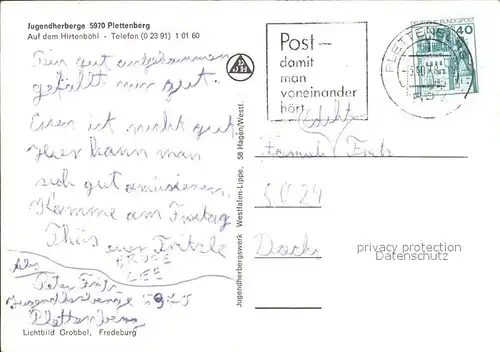 Jugendherberge 5970 Plettenberg
Auf dem Hirtenböhl - Telefon (0 23 91) 1 01 60
Bin gut angekommen
gefällt mir gut.
Essen ist nicht gut.
Hier kann man
sich gut amüsieren.
Komme am Freitag
Thüs euer Fritzle
BRUCE
LEE
Abs.
Peter Fritz
Jugendherberge
Plettenberg
Lichtbild Grobbel, Fredeburg
Jugendherbergswerk Westfalen-Lippe, 58 Hagen/Westf.
Post-
damit
man
voneinander
hört
DEUTSCHE BUNDESPOST
40
PLETTENBERG
Familie Fritz
privacy protection
Datenschutz